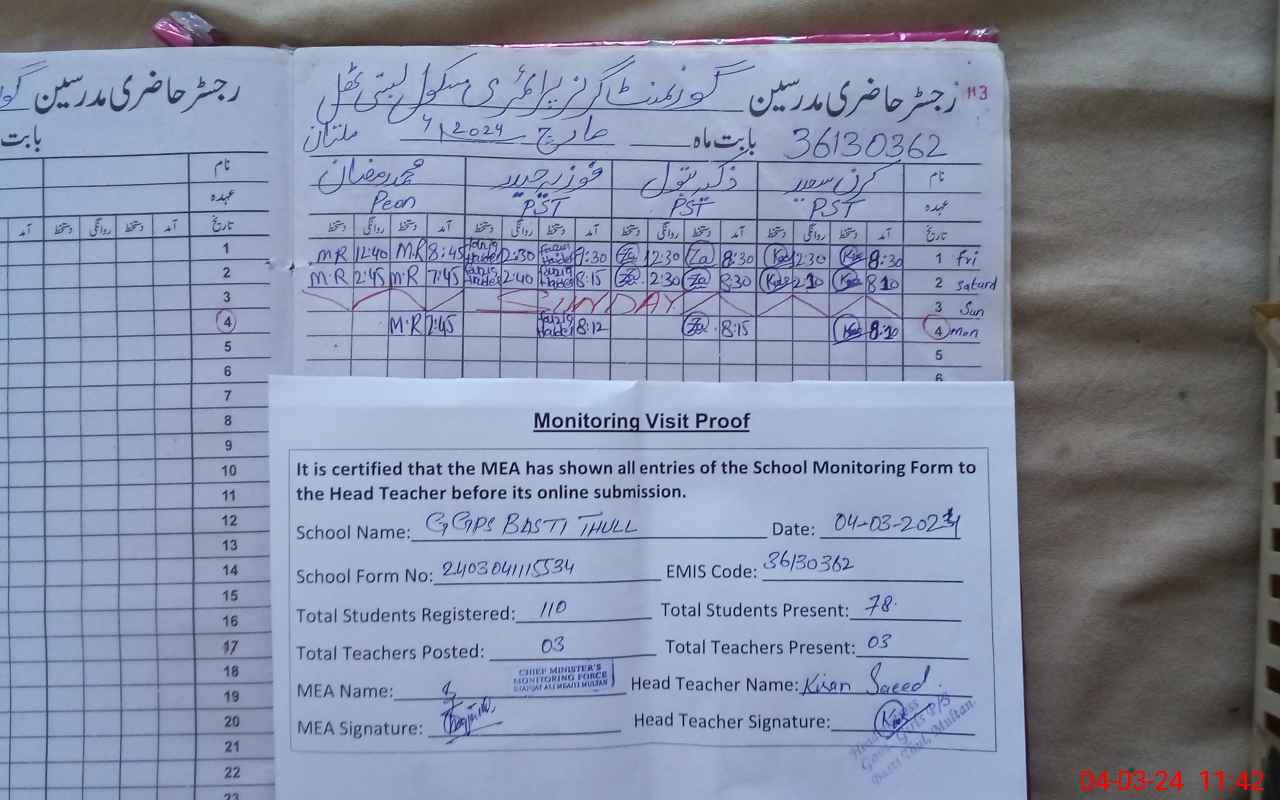 رجسٹر حاضری مدرسین
بابت
نام
عہدہ
آمد دستخط روانگی دستخط آمد تاریخ
1
2
3
4
5
6
7
8
9
10
11
12
13
14
15
16
17
18
19
20
21
22
23
رجسٹر حاضری مدرسین گورنمنٹ گرلز پرائمری سکول بستی ٹھل 113
36130362 بابت ماہ مارچ 2024 ملتان
نام کرن سعید ذکیہ بتول فوزیہ حیدر محمد رمضان
عہدہ PST PST PST Peon
تاریخ آمد دستخط روانگی دستخط آمد دستخط روانگی دستخط آمد دستخط روانگی دستخط آمد دستخط روانگی دستخط
M.R 12:40 M.R 8:45 Fauzia Haider 12:30 Fauzia Haider 7:30 Za 12:30 Za 8:30 12:30 8:30 1 Fri
M.R 2:45 M.R 7:45 Fauzia Haider 2:40 Fauzia Haider 8:15 Za 2:30 Za 8:30 2:10 8:10 2 Saturd
SUNDAY 3 Sun
M.R 7:45 Fauzia Haider 8:12 Za 8:15 8:10 4 Mon
5
6
Monitoring Visit Proof
It is certified that the MEA has shown all entries of the School Monitoring Form to
the Head Teacher before its online submission.
School Name: GGPS BASTI THULL Date: 04-03-2024
School Form No: 2403041115534 EMIS Code: 36130362
Total Students Registered: 110 Total Students Present: 78.
Total Teachers Posted: 03 Total Teachers Present: 03
CHIEF MINISTER'S
MONITORING FORCE
MEA Name: Head Teacher Name: Kiran Saeed.
MEA Signature: Head Teacher Signature:
Govt Girls P/S
Basti Thul, Multan.
04-03-24 11:42